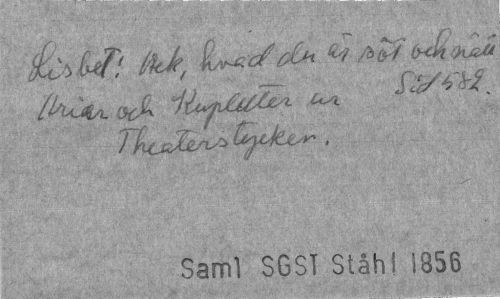 Lisbet! Ack, hvad du är söt och nätt
Arior och Kupletter ur Sid 582.
Theaterstycken.
Saml SGST Ståhl 1856